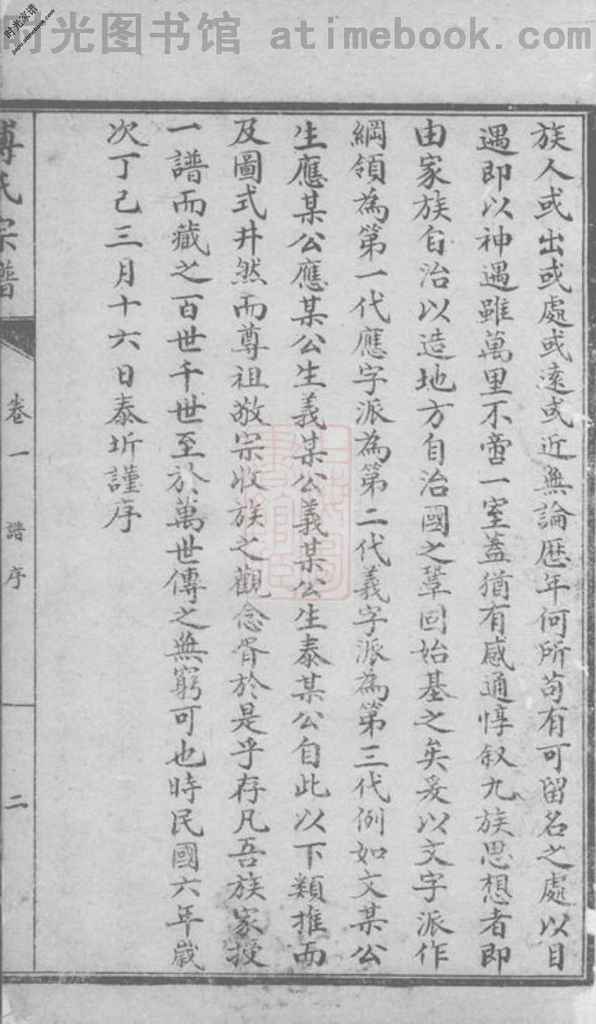 时光图书馆 atimebook.com
时光家谱
www.atimebook.com
族人或出或處或遠或近無論歷年何所苟有可留名之處以目
遇即以神遇雖萬里不啻一室蓋猶有感通惇叙九族思想者即
由家族自治以造地方自治國之鞏固始基之矣爰以文字派作
綱領為第一代應字派為第二代義字派為第三代例如文某公
生應某公應某公生義某公義某公生泰某公自此以下類推而
及圖式井然而尊祖敬宗收族之觀念胥於是乎存凡吾族家授
一譜而藏之百世千世至於萬世傳之無窮可也時民國六年歲
次丁巳三月十六日泰圻謹序
氏宗譜
卷一 譜序
二